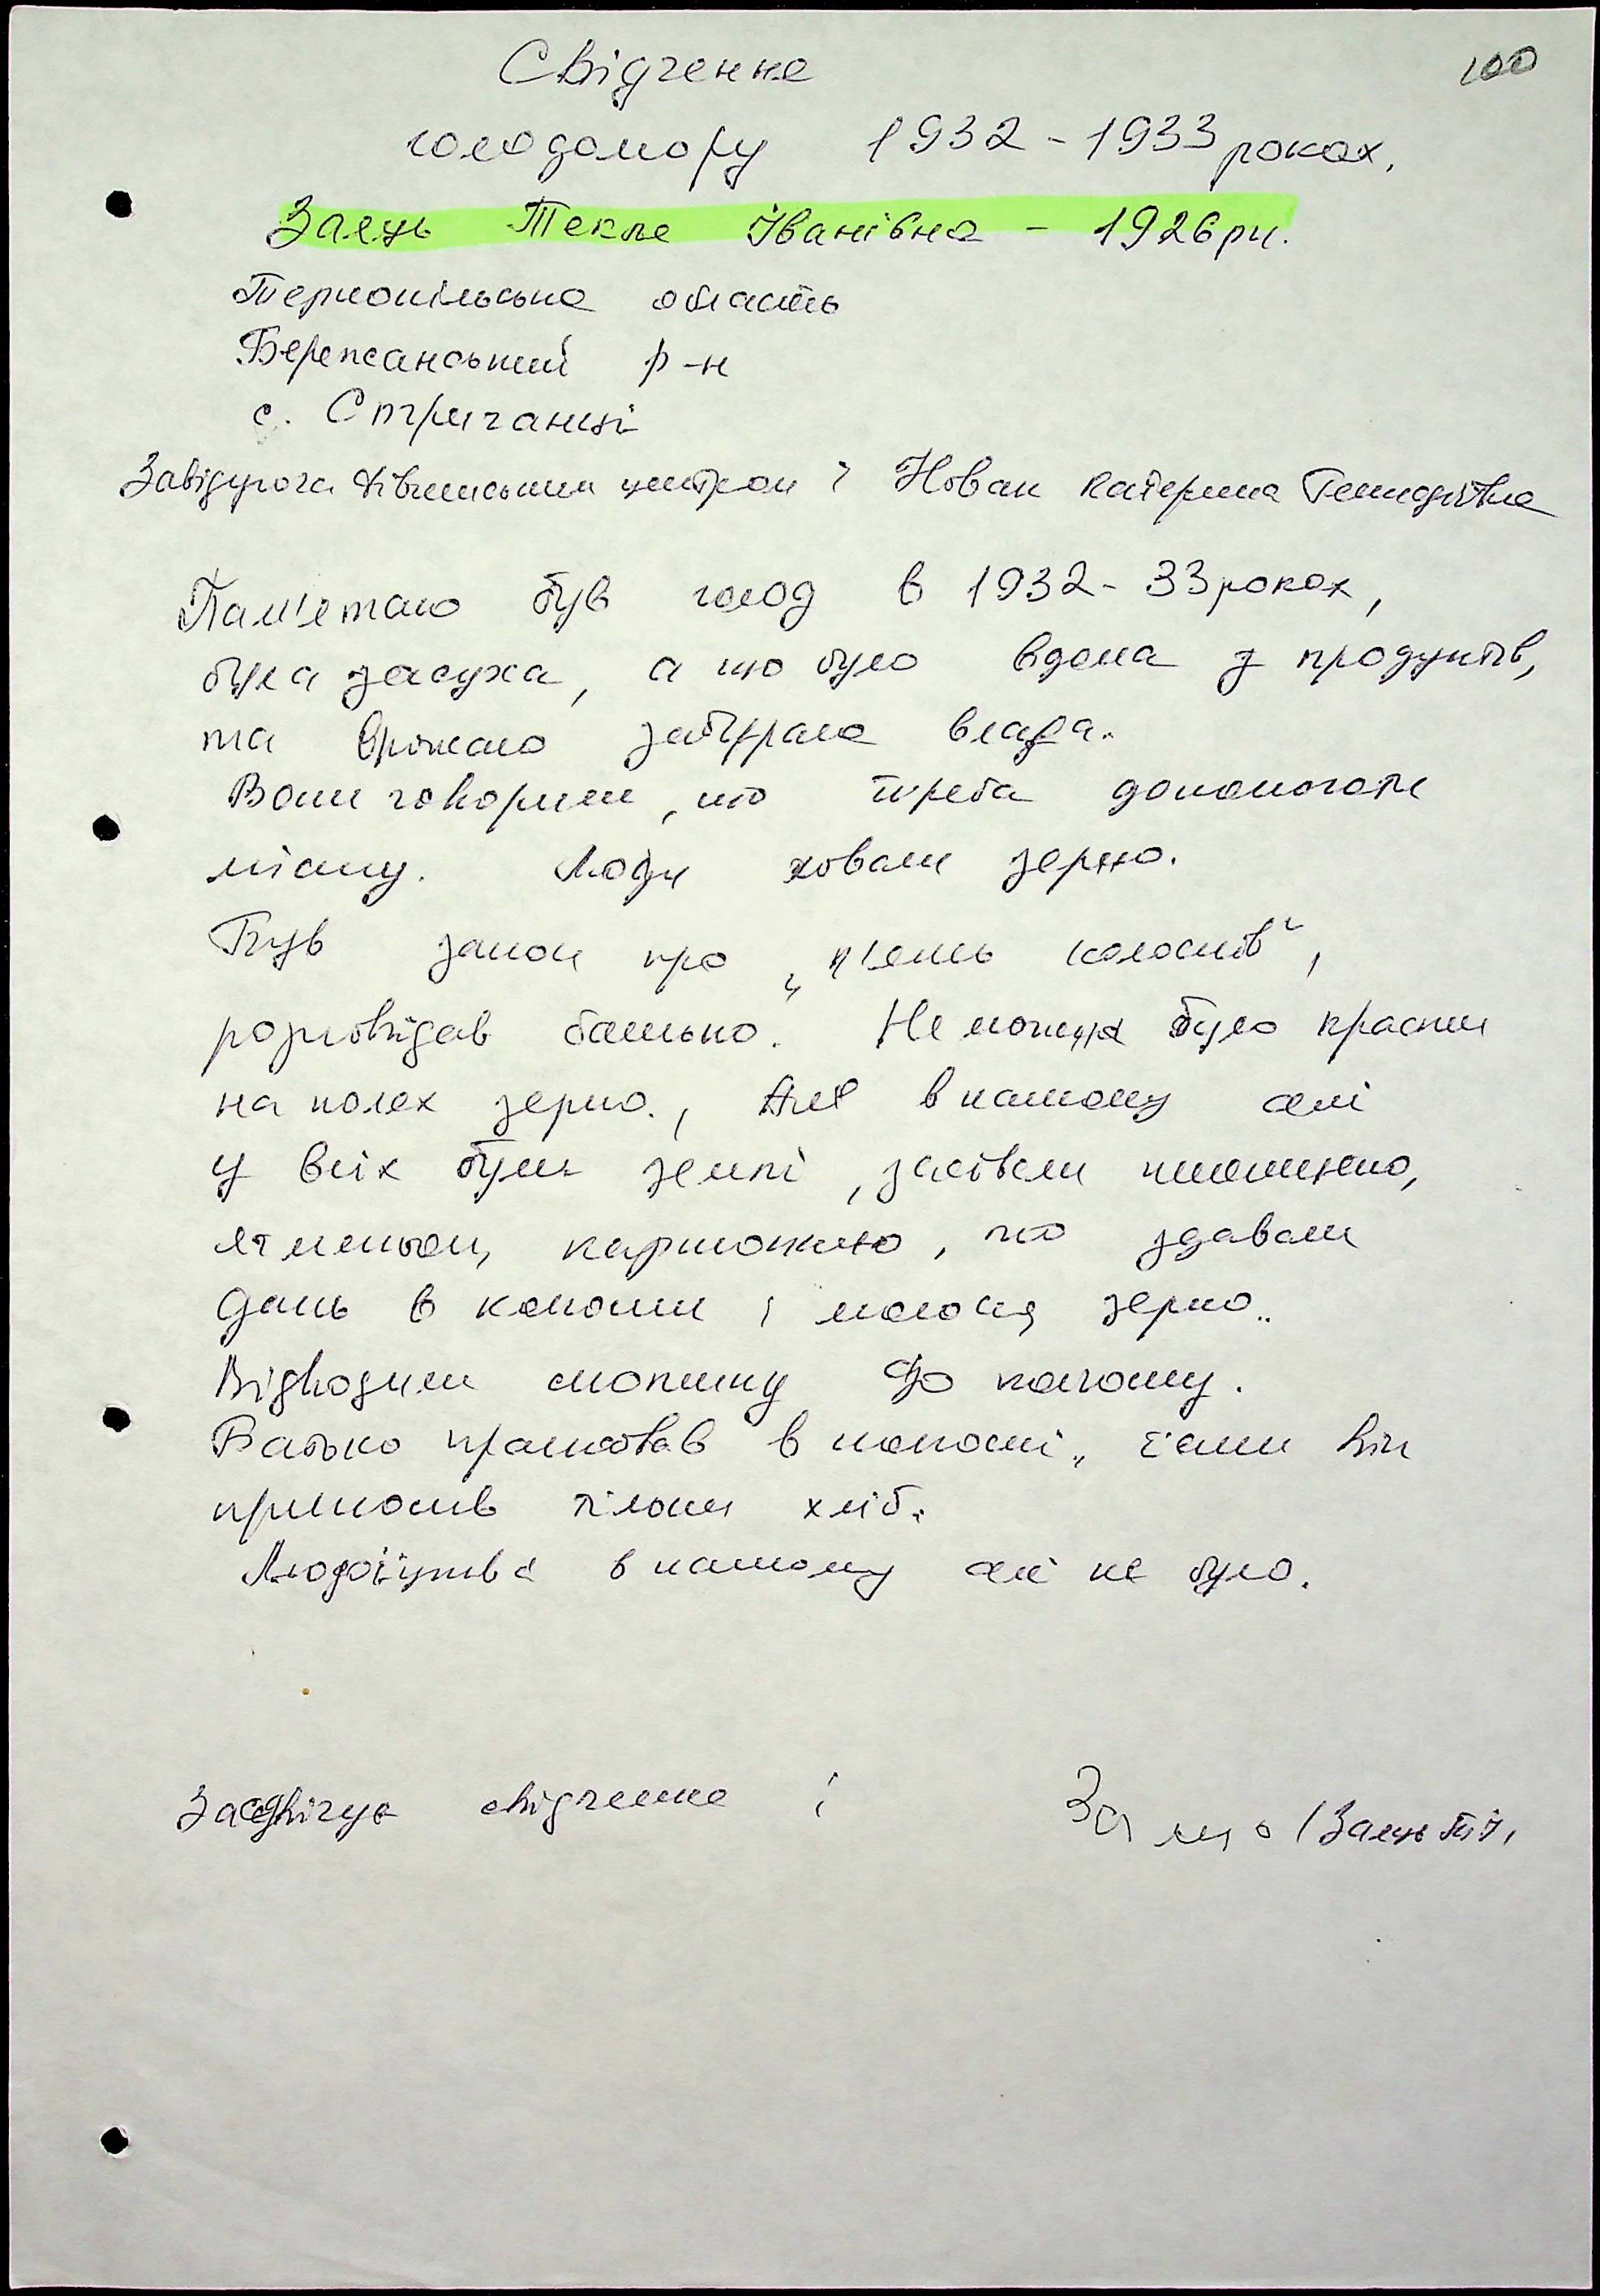 Свідчення
100
голодомору 1932-1933 роках.
Заяць Текля Іванівна - 1926 р.н.
Тернопільська область
Бережанський р-н
с. Стриганці
Завідуюча центром : Новак Катерина Геннадіївна
Пам'ятаю був голод в 1932-33 роках,
була засуха, а що було вдома з продуктів,
та врожаю забирала влада.
Вони говорили, що треба допомогати
місту. Люди ховали зерно.
Був закон про „п'ять колосків",
розповідав батько. Не можна було красти
на полях зерно., Але в нашому селі
у всіх були землі, засівали пшеницею,
ячменьом, картоплею, що здавали
дань в колгосп і молоко, зерно..
Відводили скотину до колгоспу.
Батько працював в колгоспі, їсти він
приносив тільки хліб.
Людоїдства в нашому селі не було.
Засвідчує свідчення : Заяць (Заяць Т.І.